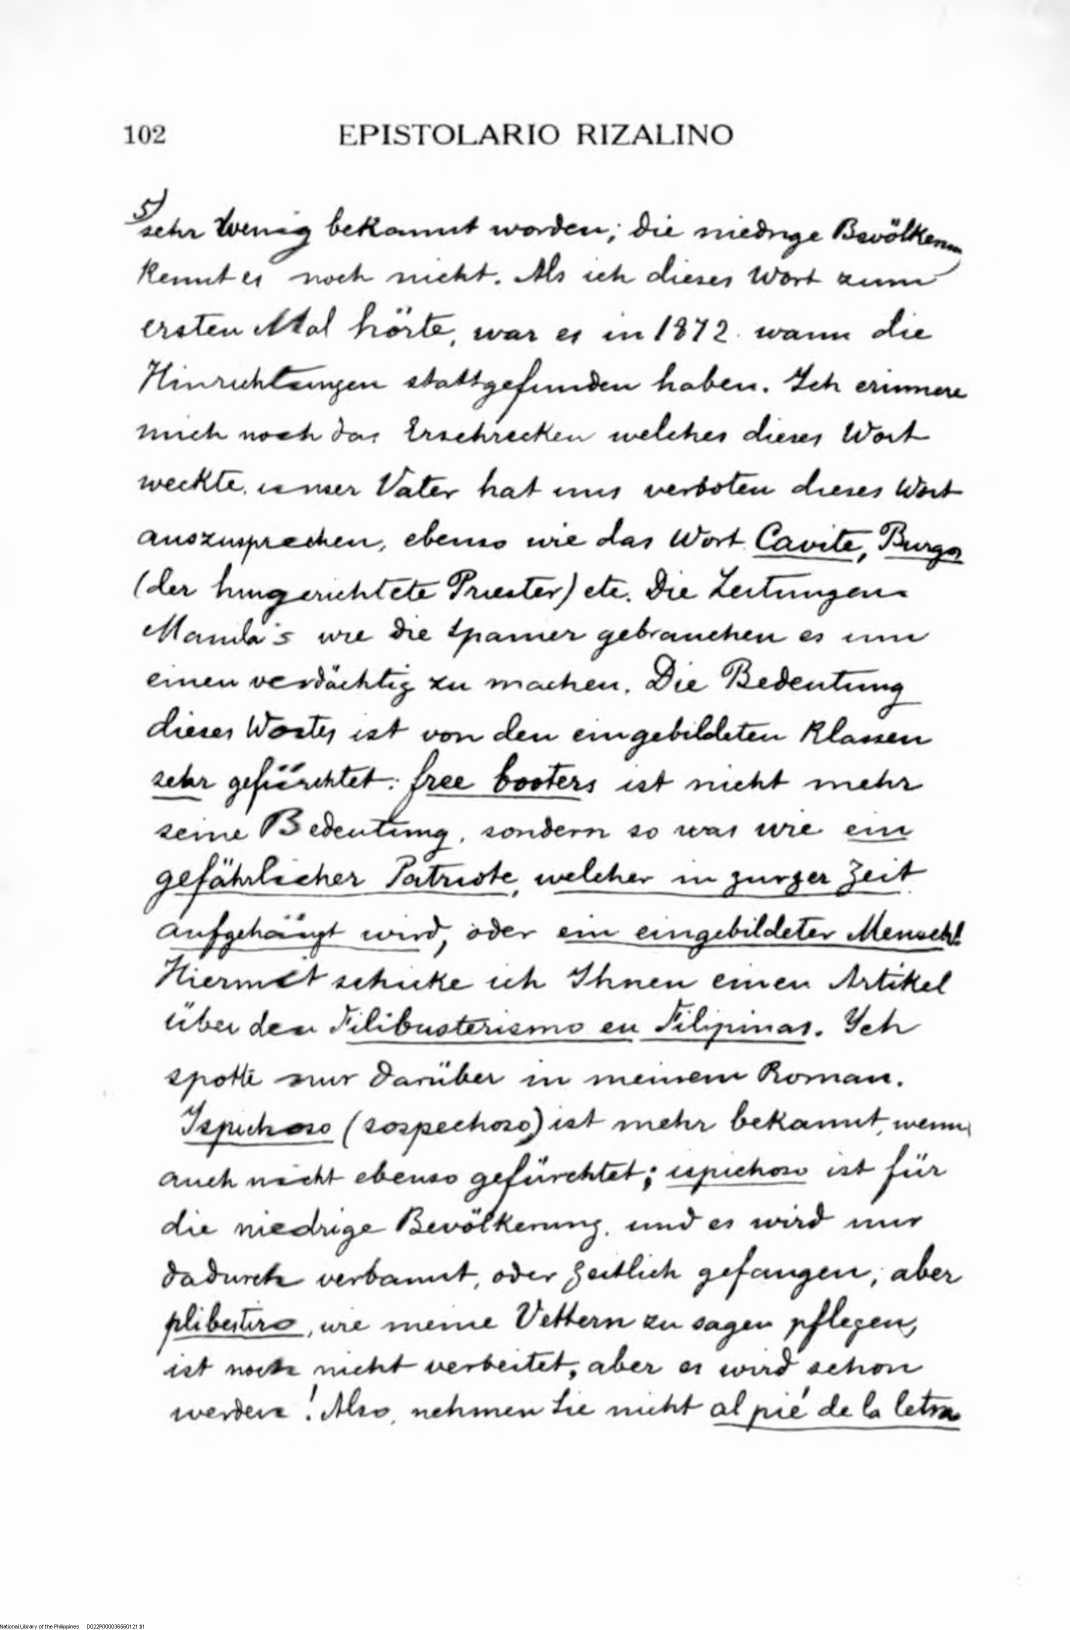 102 EPISTOLARIO RIZALINO
5)
sehr wenig bekannt worden; die niedrige Bevölkerung
kennt es noch nicht. Als ich dieses Wort zum
ersten Mal hörte, war es in 1872. wann die
Hinrichtungen stattgefunden haben. Ich erinnere
mich noch das Erschrecken welches dieses Wort
weckte. unser Vater hat uns verboten dieses Wort
auszusprechen, ebenso wie das Wort Cavite, Burgos
(der hingerichtete Priester) etc. Die Zeitungen
Manila's wie die Spanier gebrauchen es um
einen verdächtig zu machen. Die Bedeutung
dieses Wortes ist von den eingebildeten Klassen
sehr gefürchtet: free booters ist nicht mehr
seine Bedeutung, sondern so was wie ein
gefährlicher Patriote, welcher in zurzer Zeit
aufgehängt wird, oder ein eingebildeter Mensch!
Hiermit schicke ich Ihnen einen Artikel
über den Filibusterismo en Filipinas. Ich
spotte nur darüber in meinem Roman.
Ispichoso (sospechoso) ist mehr bekannt, wenn
auch nicht ebenso gefürchtet; ispichoso ist für
die niedrige Bevölkerung, und es wird nur
dadurch verbannt, oder zeitlich gefangen; aber
plibestiro, wie meine Vettern zu sagen pflegen,
ist noch nicht verbeitet, aber es wird schon
werden! Also, nehmen Sie nicht al pié de la letra
National Library of the Philippines